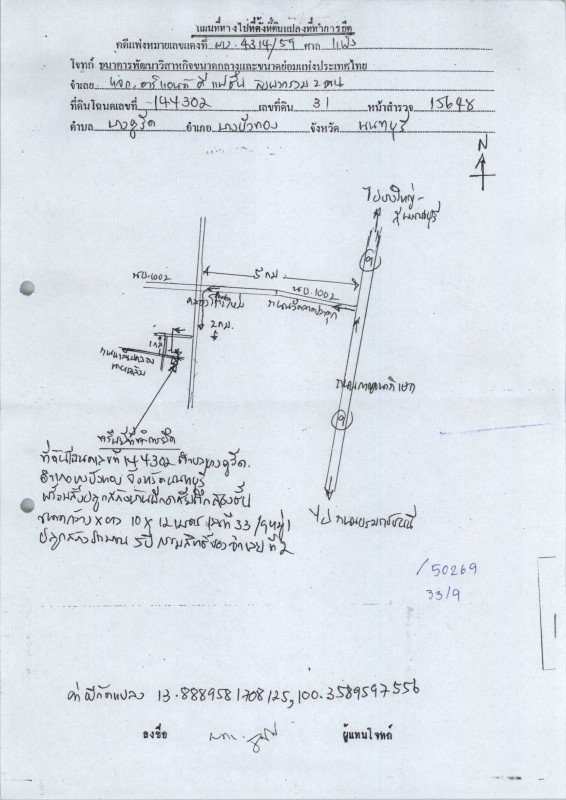 แผนที่ทางไปที่ตั้งที่ดินแปลงที่ทำการยึด
คดีแพ่งหมายเลขแดงที่ ผบ.4314/59 ศาล แพ่ง
โจทก์ ธนาคารพัฒนาวิสาหกิจขนาดกลางและขนาดย่อมแห่งประเทศไทย
จำเลย
ที่ดินโฉนดเลขที่ 144302 เลขที่ดิน 31 หน้าสำรวจ 15648
ตำบล บางคูรัด อำเภอ บางบัวทอง จังหวัด นนทบุรี
N
ไปบางใหญ่-
สุพรรณบุรี
9
5 กม.
นบ.1002
นบ.1002
2 กม.
ถนนกาญจนาภิเษก
9
ไป ถนนบรมราชชนนี
ทรัพย์ที่ทำการยึด
ที่ดินโฉนดเลขที่ 144302 ตำบลบางคูรัด
อำเภอบางบัวทอง จังหวัดนนทบุรี
พร้อมสิ่งปลูกสร้างบ้านตึกสองชั้น
ขนาดกว้าง x ยาว 10 x 12 เมตร
ปลูกสร้างประมาณ 5 ปี จำเลยที่ 2
/50269
33/9
ค่าพิกัดแปลง 13.8889581708125,100.3589597556
ลงชื่อ ผู้แทนโจทก์